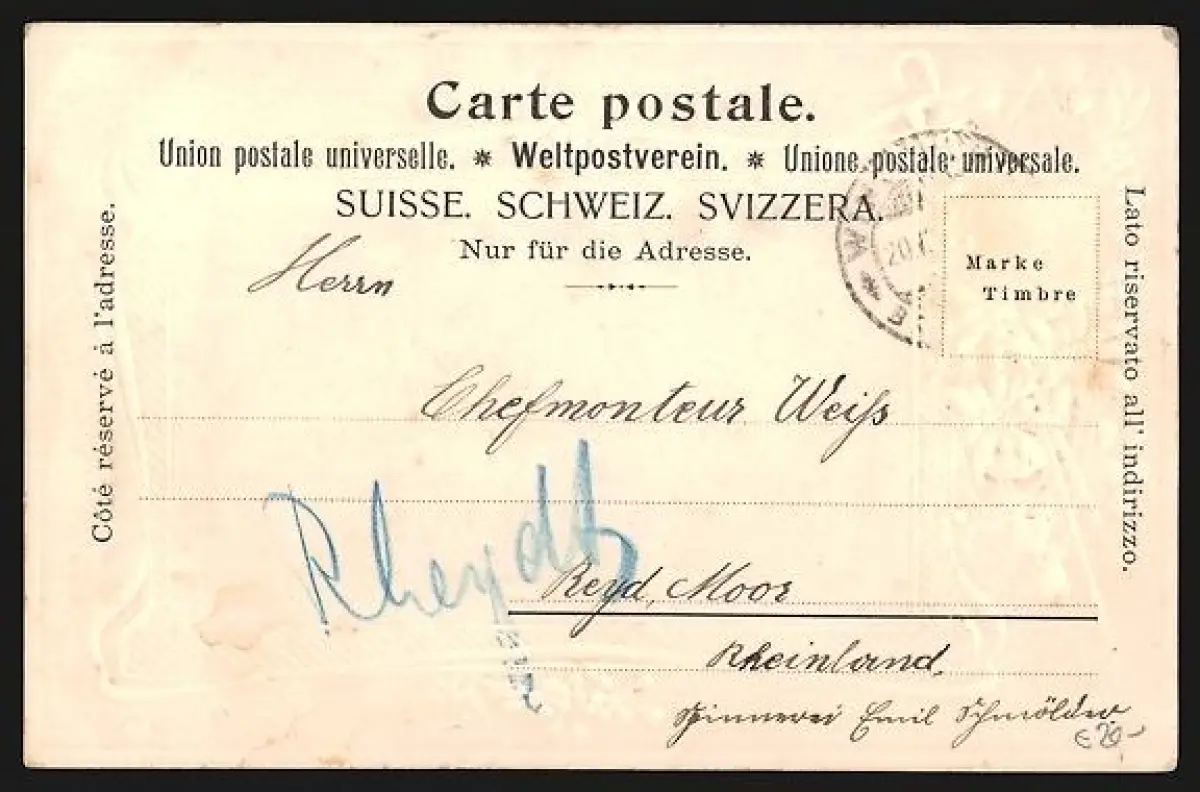 Carte postale.
Union postale universelle. * Weltpostverein. * Unione postale universale.
SUISSE. SCHWEIZ. SVIZZERA.
Nur für die Adresse.
Côté réservé à l'adresse.
Lato riservato all' indirizzo.
Marke
Timbre
W
20.
Herrn
Chefmonteur Weiß
Rheydt
Reyd, Moor
Rheinland,
Spinnerei Emil Schmölder
€20-